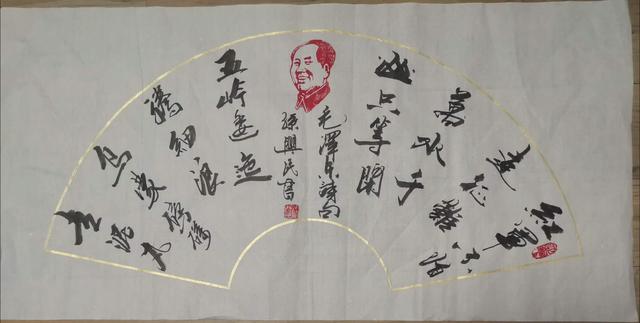 紅軍不怕
遠征難
萬水千
山只等閑
毛澤東詩句
孫興民書
五岭逶迤
騰細浪
烏蒙磅礴
走泥丸